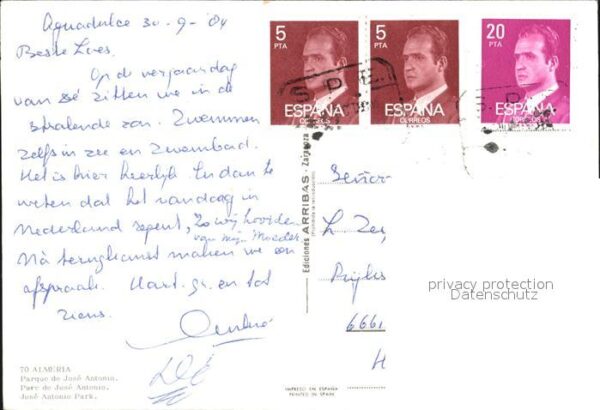 Aguadulce 30-9-'84
Beste Lies.
Op de verjaardag
van Zé zitten we in de
stralende zon. Zwemmen
zelfs in zee en zwembad.
Het is hier heerlijk. En dan te
weten dat het vandaag in
Nederland regent, zo wij hoorden
van mijn Moeder
Ná terugkomst maken we een
afspraak. Hart. gr. en tot
ziens.
70 ALMERIA
Parque de José Antonio.
Parc de José Antonio.
José Antonio Park.
Ediciones ARRIBAS - Zaragoza
5
PTA
ESPAÑA
CORREOS
5
PTA
ESPAÑA
CORREOS
20
PTA
ESPAÑA
CORREOS
Señor
6661
H
privacy protection
Datenschutz
IMPRESO EN ESPAÑA
PRINTED IN SPAIN